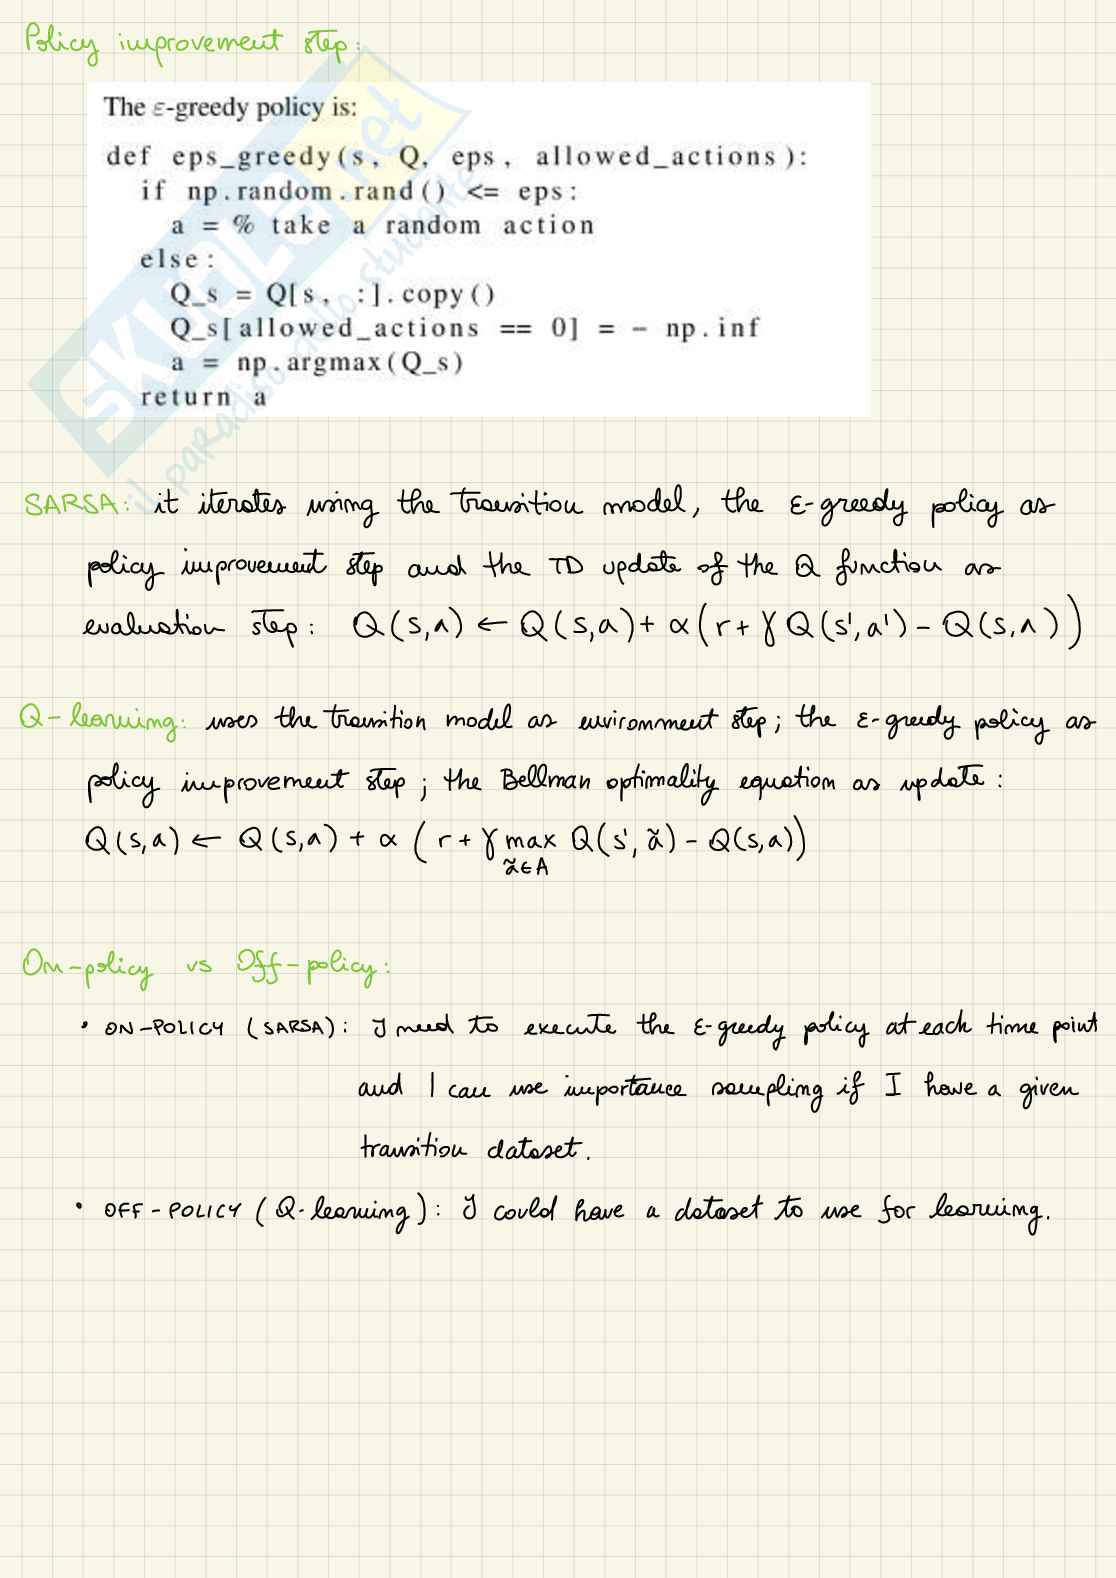 Policy improvement step:
The ε-greedy policy is:
def eps_greedy(s, Q, eps, allowed_actions):
if np.random.rand() <= eps:
a = % take a random action
else:
Q_s = Q[s, :].copy()
Q_s[allowed_actions == 0] = - np.inf
a = np.argmax(Q_s)
return a
SKUOLA.net
il paradiso dello studente
SARSA: it iterates using the transition model, the ε-greedy policy as
policy improvement step and the TD update of the Q function as
evaluation step: Q(s,a) ← Q(s,a) + α(r + γ Q(s',a') - Q(s,a))
Q-learning: uses the transition model as environment step; the ε-greedy policy as
policy improvement step; the Bellman optimality equation as update:
Q(s,a) ← Q(s,a) + α (r + γ max Q(s', ã) - Q(s,a))
ã∈A
On-policy vs Off-policy:
• ON-POLICY (SARSA): I need to execute the ε-greedy policy at each time point
and I can use importance sampling if I have a given
transition dataset.
• OFF-POLICY (Q-learning): I could have a dataset to use for learning.